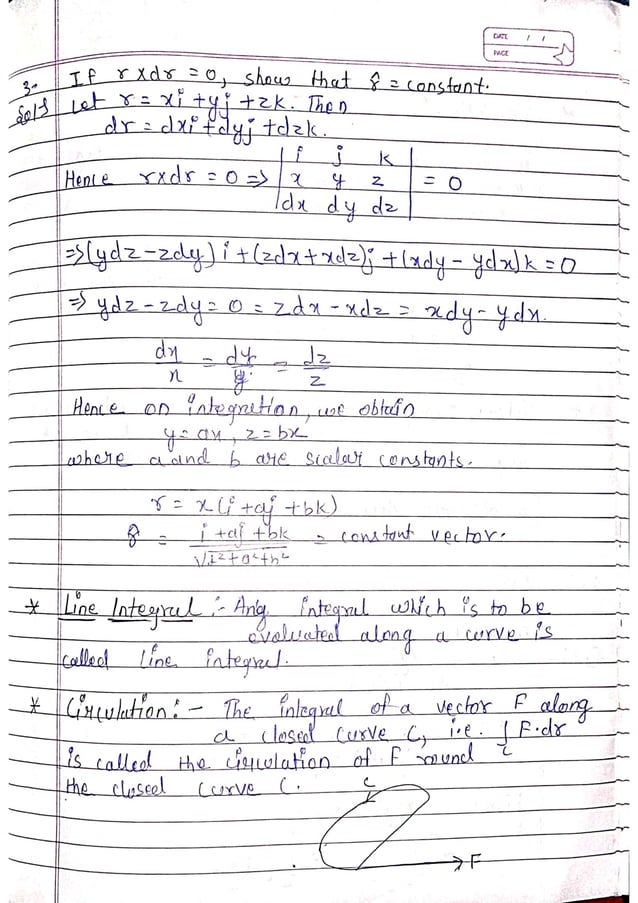 DATE / /
PAGE
3. If r×dr = 0, show that r̂ = constant.
Solⁿ Let r = xi + yj + zk. Then
dr = dxi + dyj + dzk.
Hence r×dr = 0 => | i j k |
| x y z | = 0
| dx dy dz |
=> (ydz - zdy) i + (zdx + xdz)j + (xdy - ydx)k = 0
=> ydz - zdy = 0 = zdx - xdz = xdy - ydx.
dx/x = dy/y = dz/z
Hence on integretion, we obtain
y = ax, z = bx
where a and b are scalar constants.
r = x(i + aj + bk)
r̂ = i + aj + bk / √1²+a²+b² = constant vector.
* Line Integral :- Any integral which is to be
evaluated along a curve is
called line integral.
* Circulation :- The integral of a vector F along
a closed curve C, i.e. ∫c F·dr
is called the circulation of F round
the closed curve C.
C
F